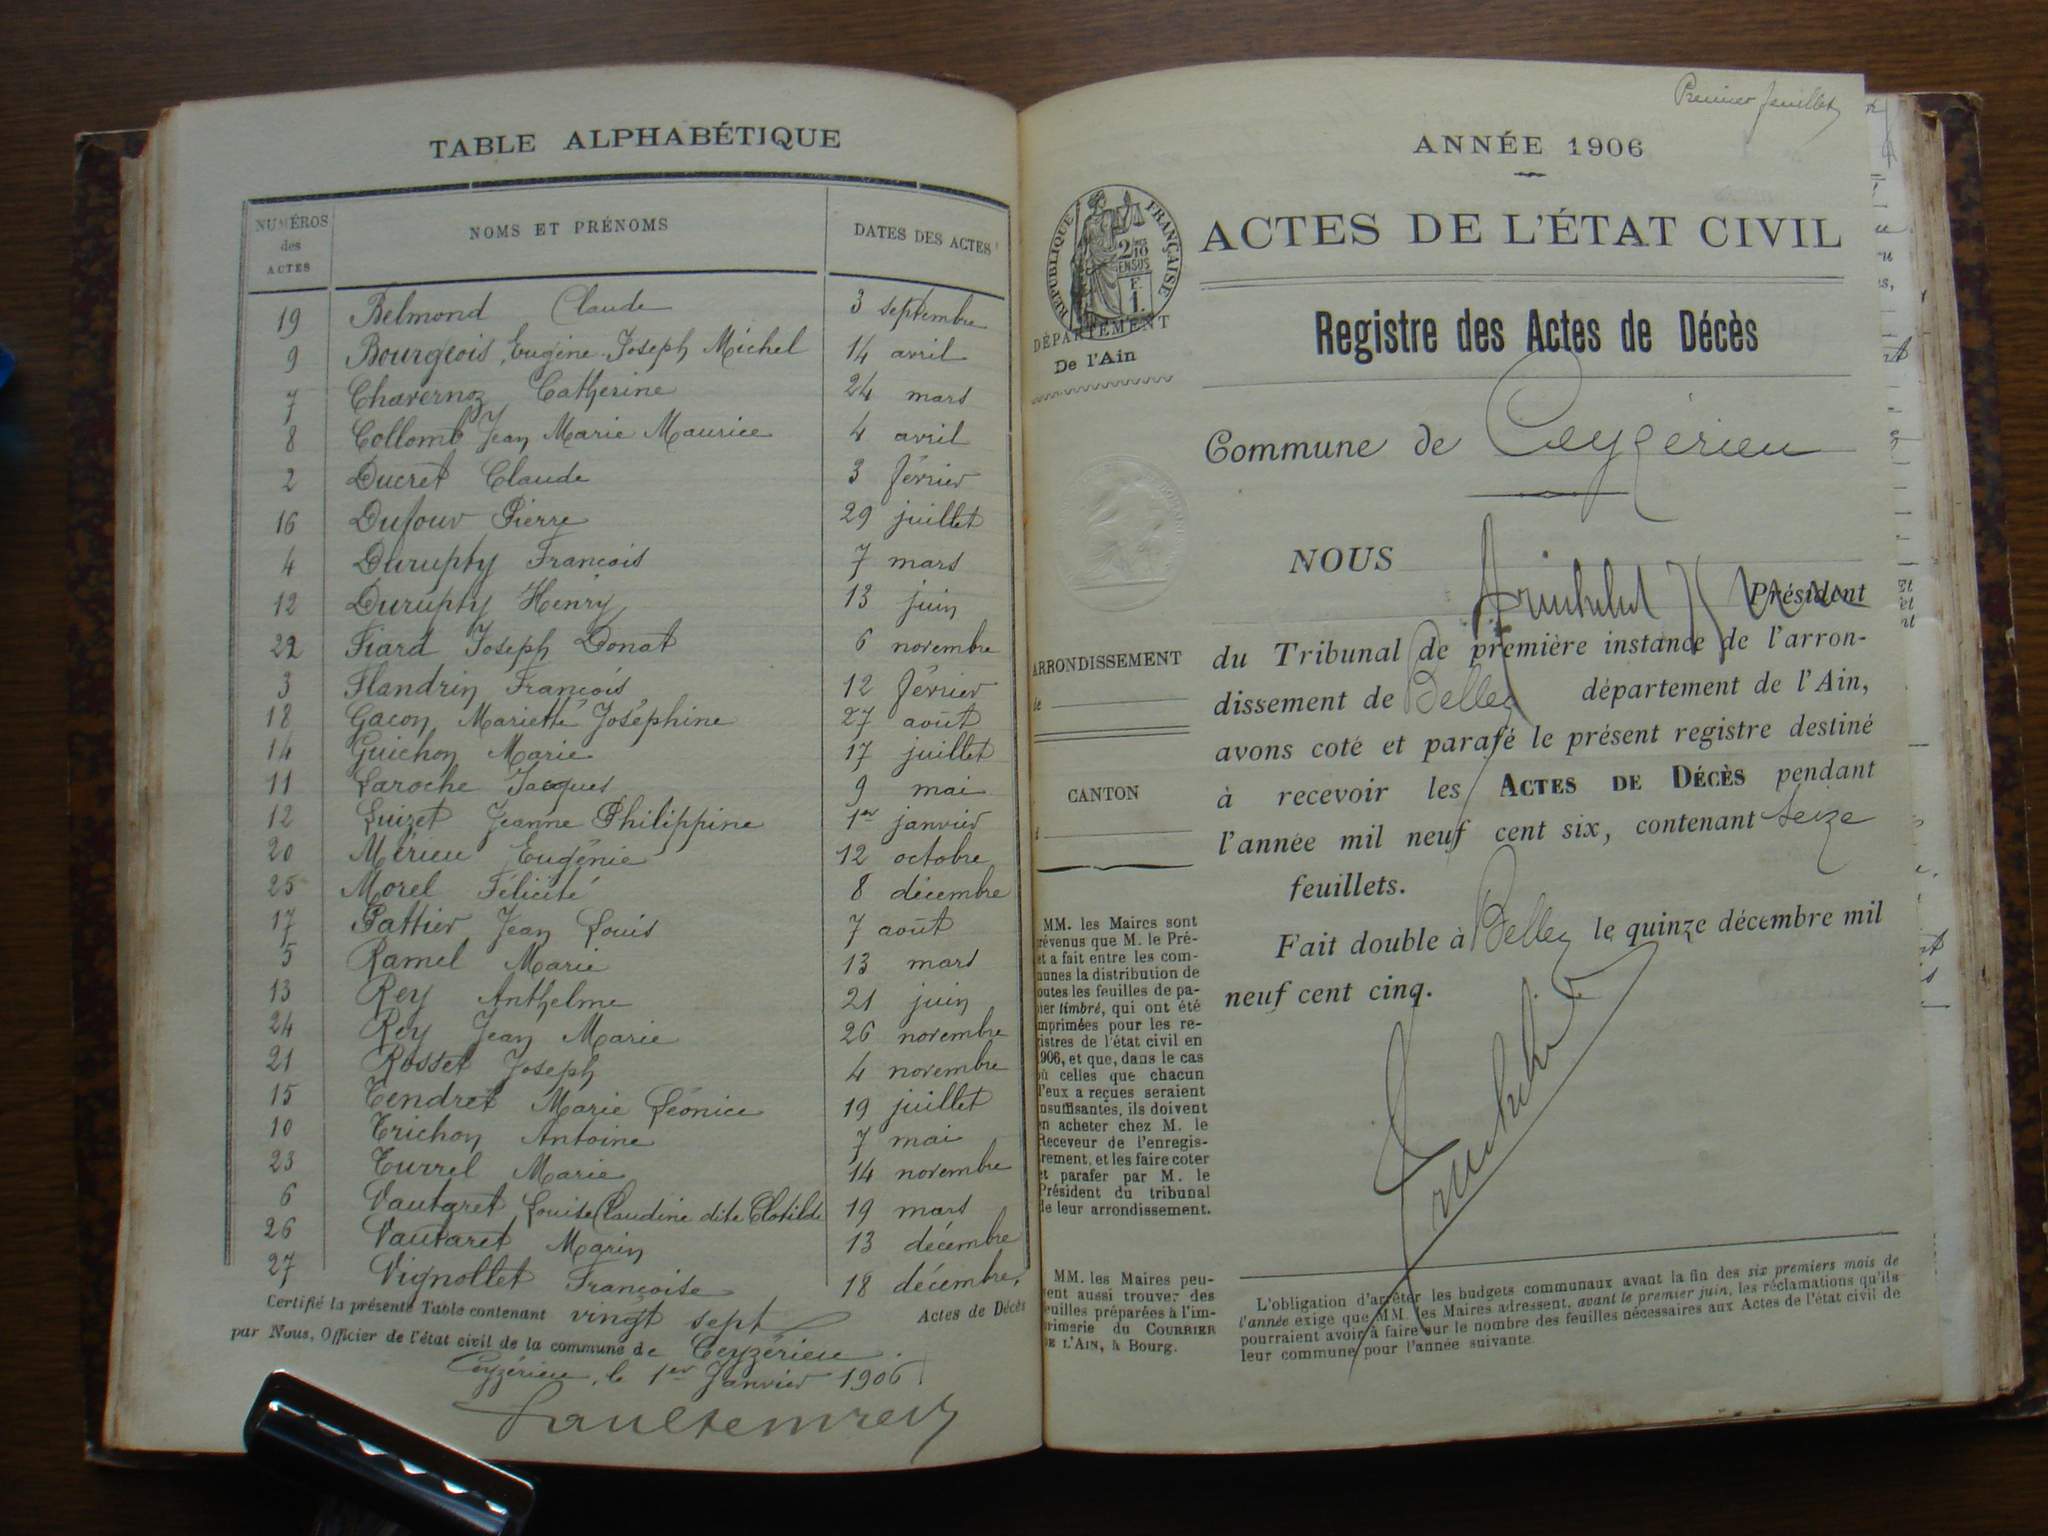 TABLE ALPHABÉTIQUE
NUMÉROS des ACTES NOMS ET PRÉNOMS DATES DES ACTES
19 Belmond Claude 3 septembre
9 Bourgeois Eugène Joseph Michel 14 avril
7 Chavernoz Catherine 24 mars
8 Collomb Jean Marie Maurice 4 avril
2 Ducret Claude 3 février
16 Dufour Pierre 29 juillet
4 Durupty François 7 mars
12 Durupty Henry 13 juin
22 Fiard Joseph Donat 6 novembre
3 Flandrin François 12 février
18 Gacon Mariette Joséphine 27 août
14 Guichon Marie 17 juillet
11 Laroche Jacques 9 mai
12 Luizet Jeanne Philippine 1er janvier
20 Mérieu Eugénie 12 octobre
25 Morel Félicité 8 décembre
17 Pattier Jean Louis 7 août
5 Ramel Marie 13 mars
13 Rey Anthelme 21 juin
24 Rey Jean Marie 26 novembre
21 Rosset Joseph 4 novembre
15 Tendret Marie Léonice 19 juillet
10 Trichon Antoine 7 mai
23 Turrel Marie 14 novembre
6 Vautaret Louise Claudine dite Clotilde 19 mars
26 Vautaret Marin 13 décembre
27 Vignollet Françoise 18 décembre.
Certifié la présente Table contenant vingt sept Actes de Décès
par Nous, Officier de l'état civil de la commune de Ceyzérieu.
Ceyzérieu, le 1er Janvier 1906
Premier feuillet
ANNÉE 1906
ACTES DE L'ÉTAT CIVIL
RÉPUBLIQUE FRANÇAISE
2 10 EN SUS
F. 1.
DÉPARTEMENT
De l'Ain
Registre des Actes de Décès
Commune de Ceyzérieu
NOUS
Président
du Tribunal de première instance de l'arron-
dissement de Belley département de l'Ain,
avons coté et parafé le présent registre destiné
à recevoir les ACTES DE DÉCÈS pendant
l'année mil neuf cent six, contenant seize
feuillets.
Fait double à Belley le quinze décembre mil
neuf cent cinq.
ARRONDISSEMENT
CANTON
MM. les Maires sont
prévenus que M. le Pré-
et a fait entre les com-
munes la distribution de
toutes les feuilles de pa-
pier timbré, qui ont été
imprimées pour les re-
gistres de l'état civil en
1906, et que, dans le cas
où celles que chacun
d'eux a reçues seraient
insuffisantes, ils doivent
en acheter chez M. le
Receveur de l'enregis-
trement, et les faire coter
et parafer par M. le
Président du tribunal
de leur arrondissement.
MM. les Maires peu-
vent aussi trouver des
feuilles préparées à l'im-
primerie du COURRIER
DE L'AIN, à Bourg.
L'obligation d'arrêter les budgets communaux avant la fin des six premiers mois de
l'année exige que MM. les Maires adressent, avant le premier juin, les réclamations qu'ils
pourraient avoir à faire sur le nombre des feuilles nécessaires aux Actes de l'état civil de
leur commune pour l'année suivante.